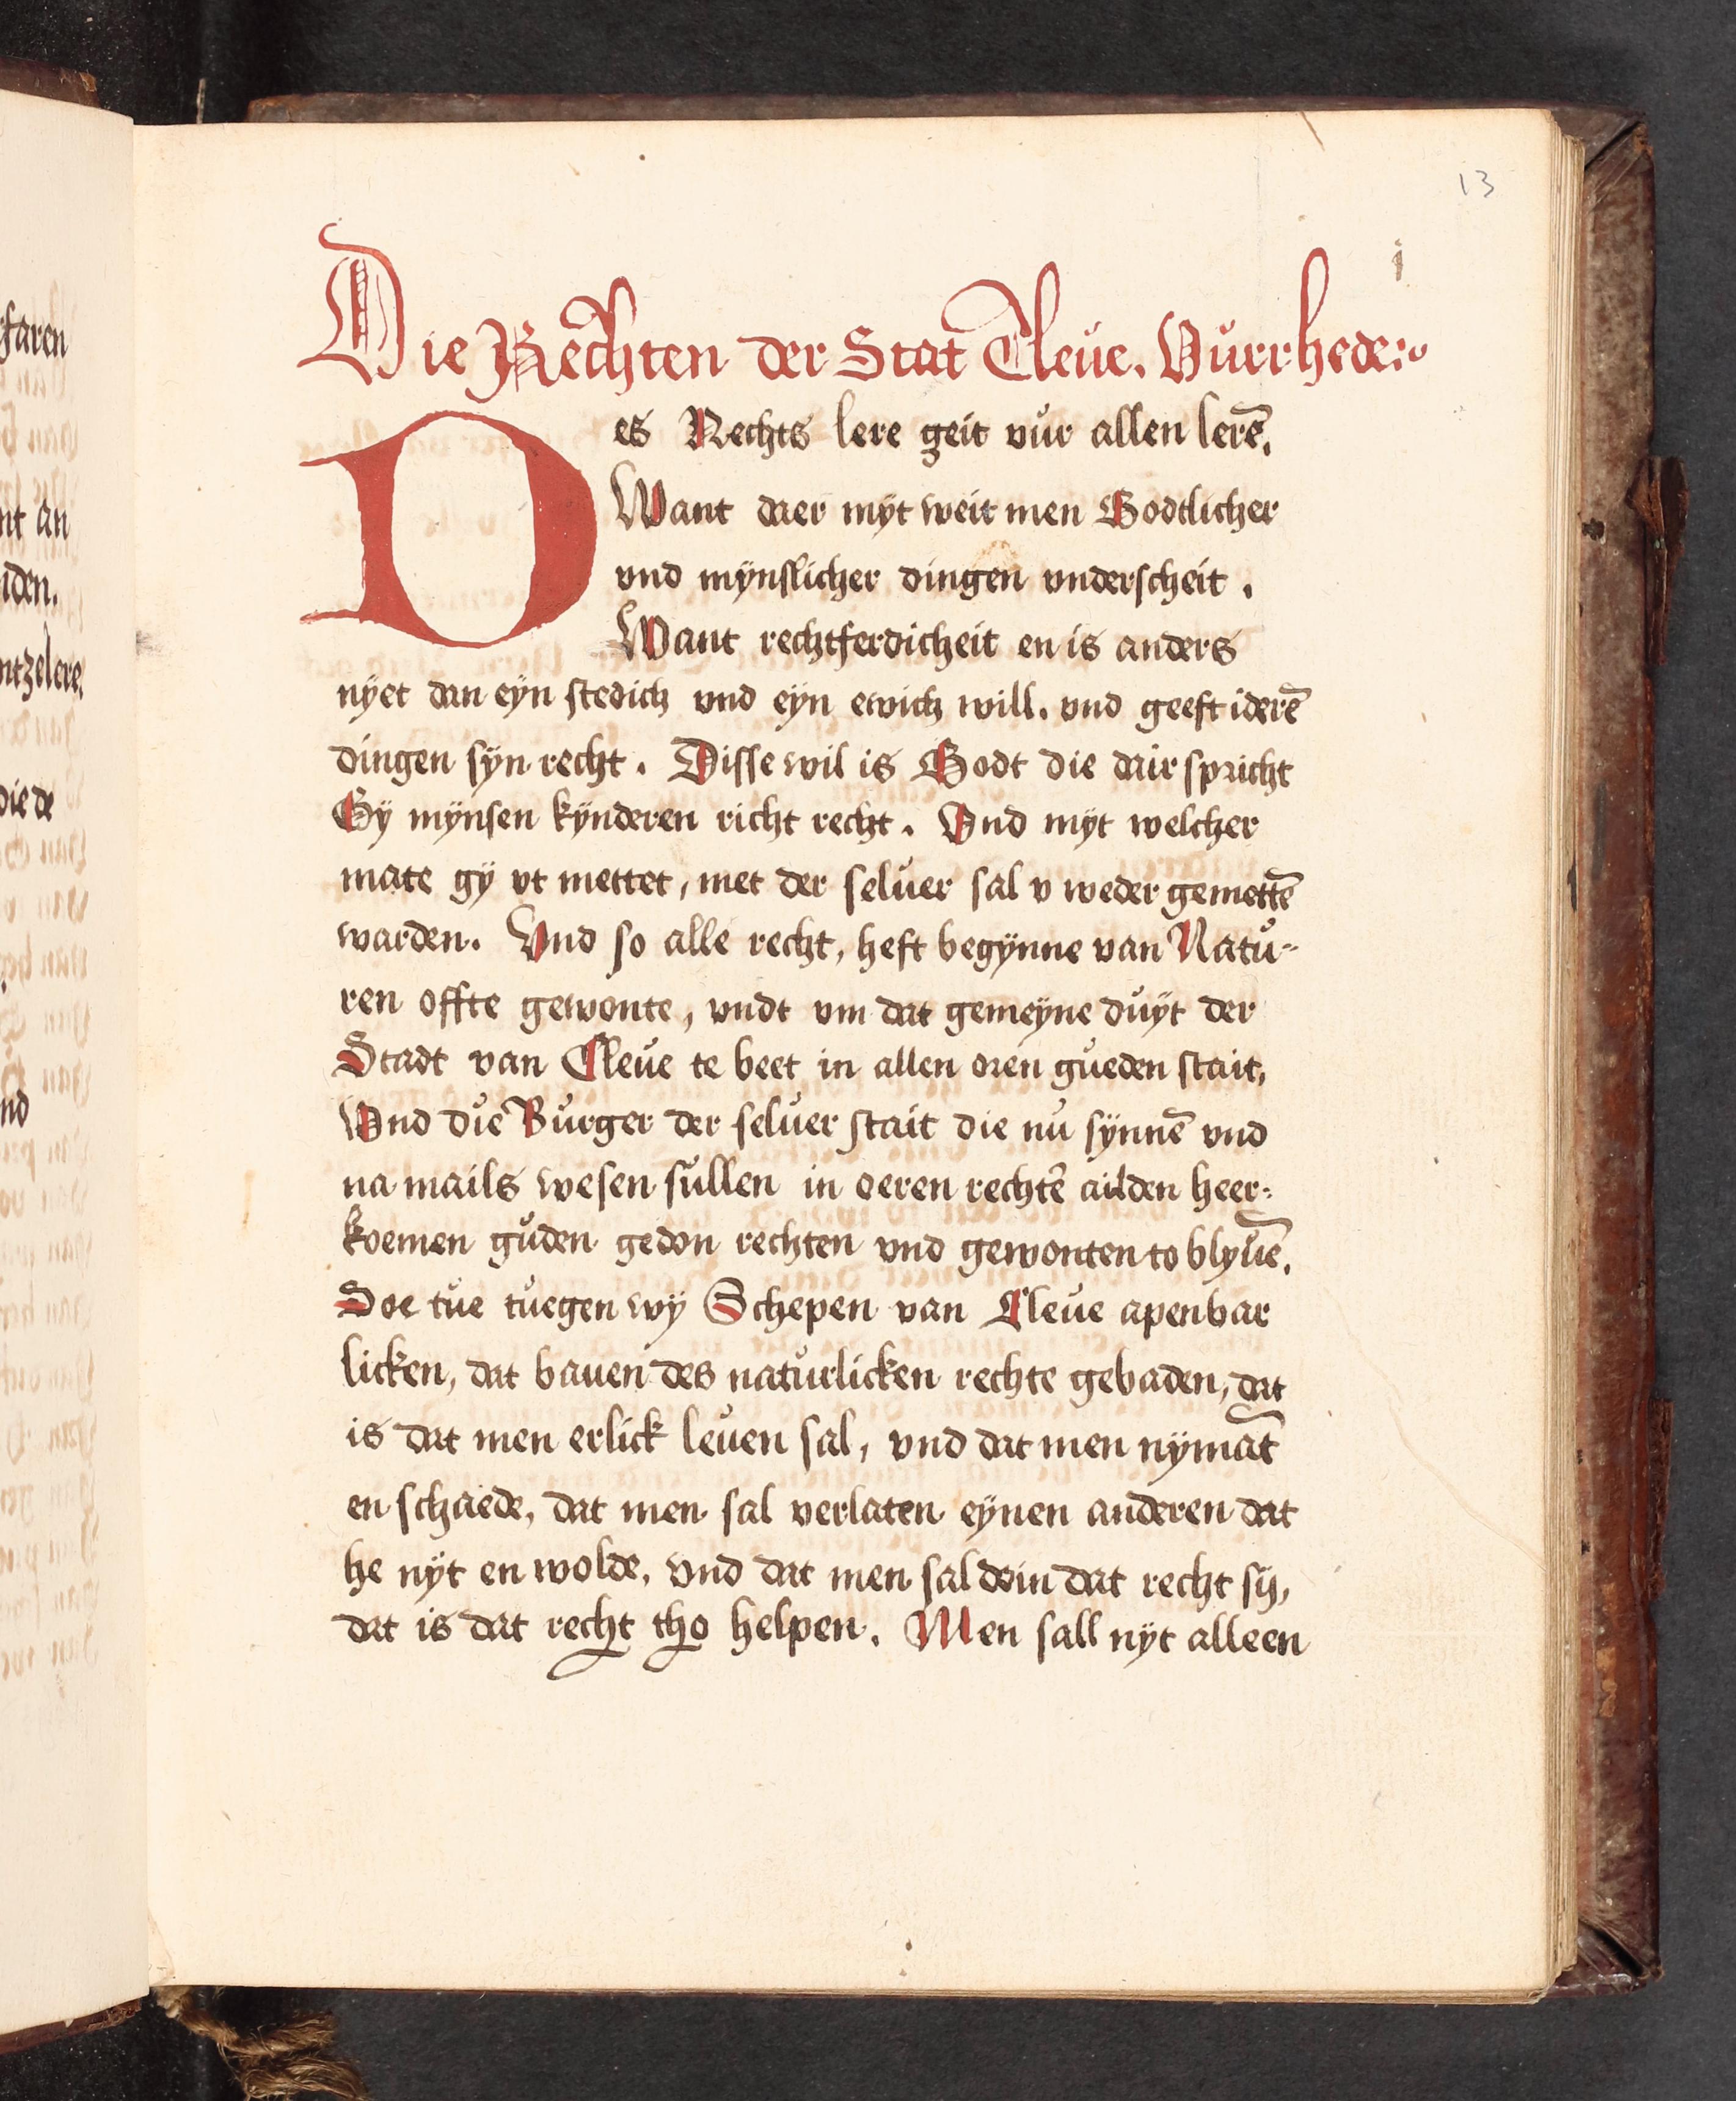 13
i
Die Rechten der Stat Cleue. Vurrhede:
Des Rechts lere geit vur allen lerē.
Want daer myt weit men Godtlicher
vnd mÿnslicher dingen vnderscheit.
Want rechtferdicheit en is anders
nÿet dan eÿn stedich vnd eÿn ewich will. vnd geeft iderē
dingen sÿn recht. Disse wil is Godt die dair spricht
Gÿ mÿnsen kÿnderen richt recht. Vnd mÿt welcher
mate gÿ vt mettet, met der seluer sal v weder gemettē
warden. Vnd so alle recht, heft begÿnne van Natu-
ren offte gewonte, vndt vm dat gemeÿne duÿt der
Stadt van Cleue te beet in allen oren gueden stait,
Vnd die Burger der seluer stait die nu sÿnnē vnd
na mails wesen sullen in oeren rechtē ailden heer:
koemen guden gedon rechten vnd gewonten to blyuē.
Soe tue tuegen wÿ Schepen van Cleue apenbar
licken, dat bauen des naturlicken rechte gebaden, dat
is dat men erlick leuen sal, vnd dat men nÿmāt
en schaede, dat men sal verlaten eÿnen anderen dat
he nÿt en wolde, vnd dat men sal doin dat recht sÿ,
dat is dat recht tho helpen. Men sall nÿt alleen
faren
nt an
den.
ntzelere.
die de
nd